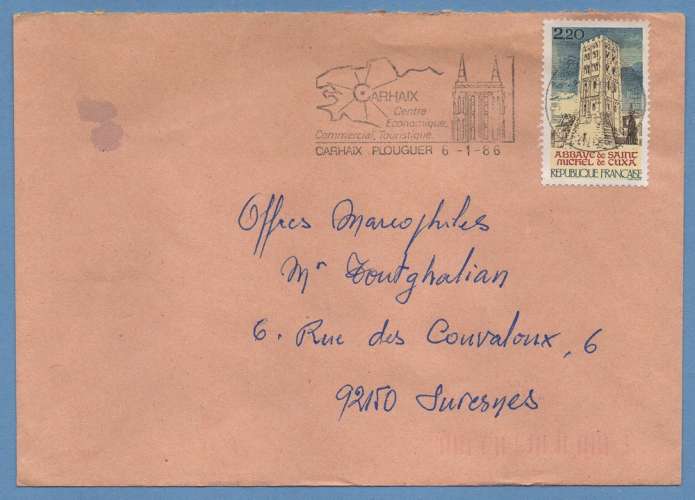 2,20
ABBAYE de SAINT
MICHEL de CUXA
REPUBLIQUE FRANCAISE
CARHAIX
Centre
Economique,
Commercial, Touristique.
CARHAIX PLOUGUER 6 -1-86
Offres Marcophiles
Mr Toutghalian
6. Rue des Couvaloux, 6
92150 Suresnes